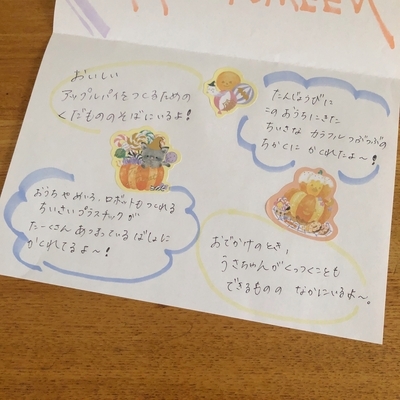 HALLOWEEN
おいしい
アップルパイをつくるための
くだもののそばにいるよ!
たんじょうびに
このおうちにきた
ちいさな カラフルつぶつぶの
ちかくに かくれたよ〜!
おうちやめいろ、ロボットもつくれる
ちいさいプラスチックが
たーくさん あつまっているばしょに
かくれてるよ〜!
おでかけのとき、
うさちゃんがくっつくことも
できるものの なかにいるよ〜。